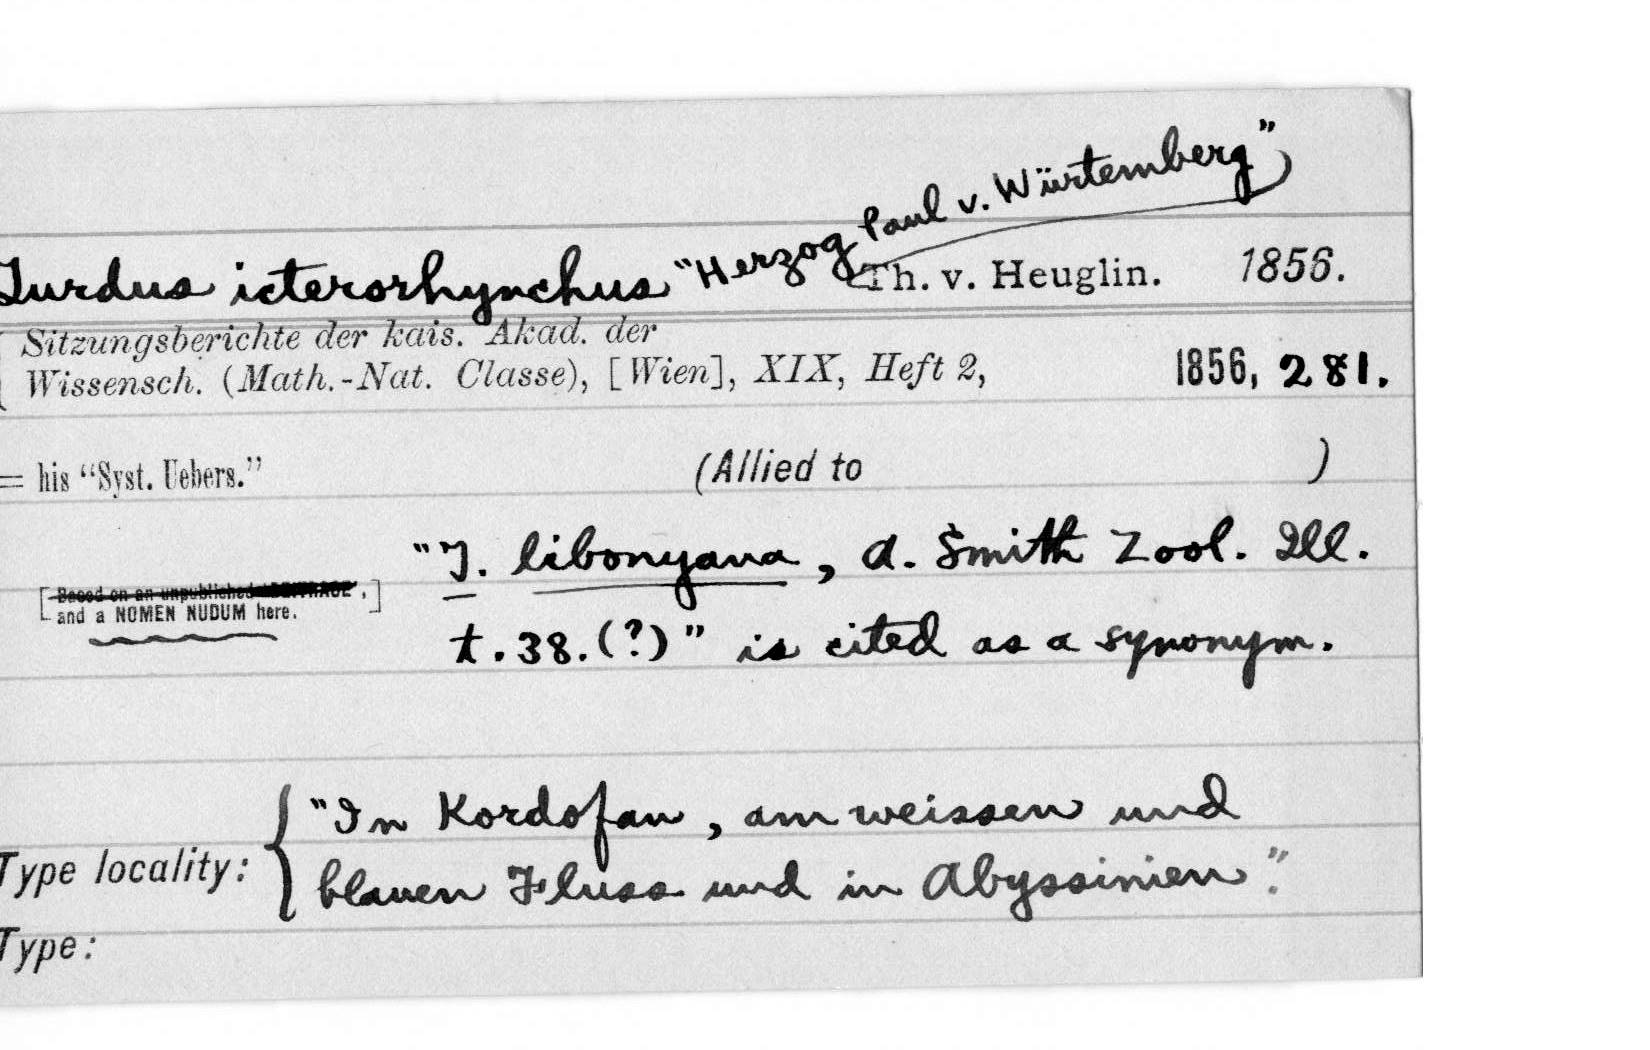 "Herzog Paul v. Würtemberg"
Turdus icterorhynchus Th. v. Heuglin. 1856.
Sitzungsberichte der kais. Akad. der
Wissensch. (Math.-Nat. Classe), [Wien], XIX, Heft 2, 1856, 281.
= his "Syst. Uebers." (Allied to )
"T. libonyana, A. Smith Zool. Ill.
[Based on an unpublished BEITRAGE,]
and a NOMEN NUDUM here.
t. 38. (?)" is cited as a synonym.
"In Kordofan, am weissen und
Type locality: {
blauen Fluss und in Abyssinien".
Type: